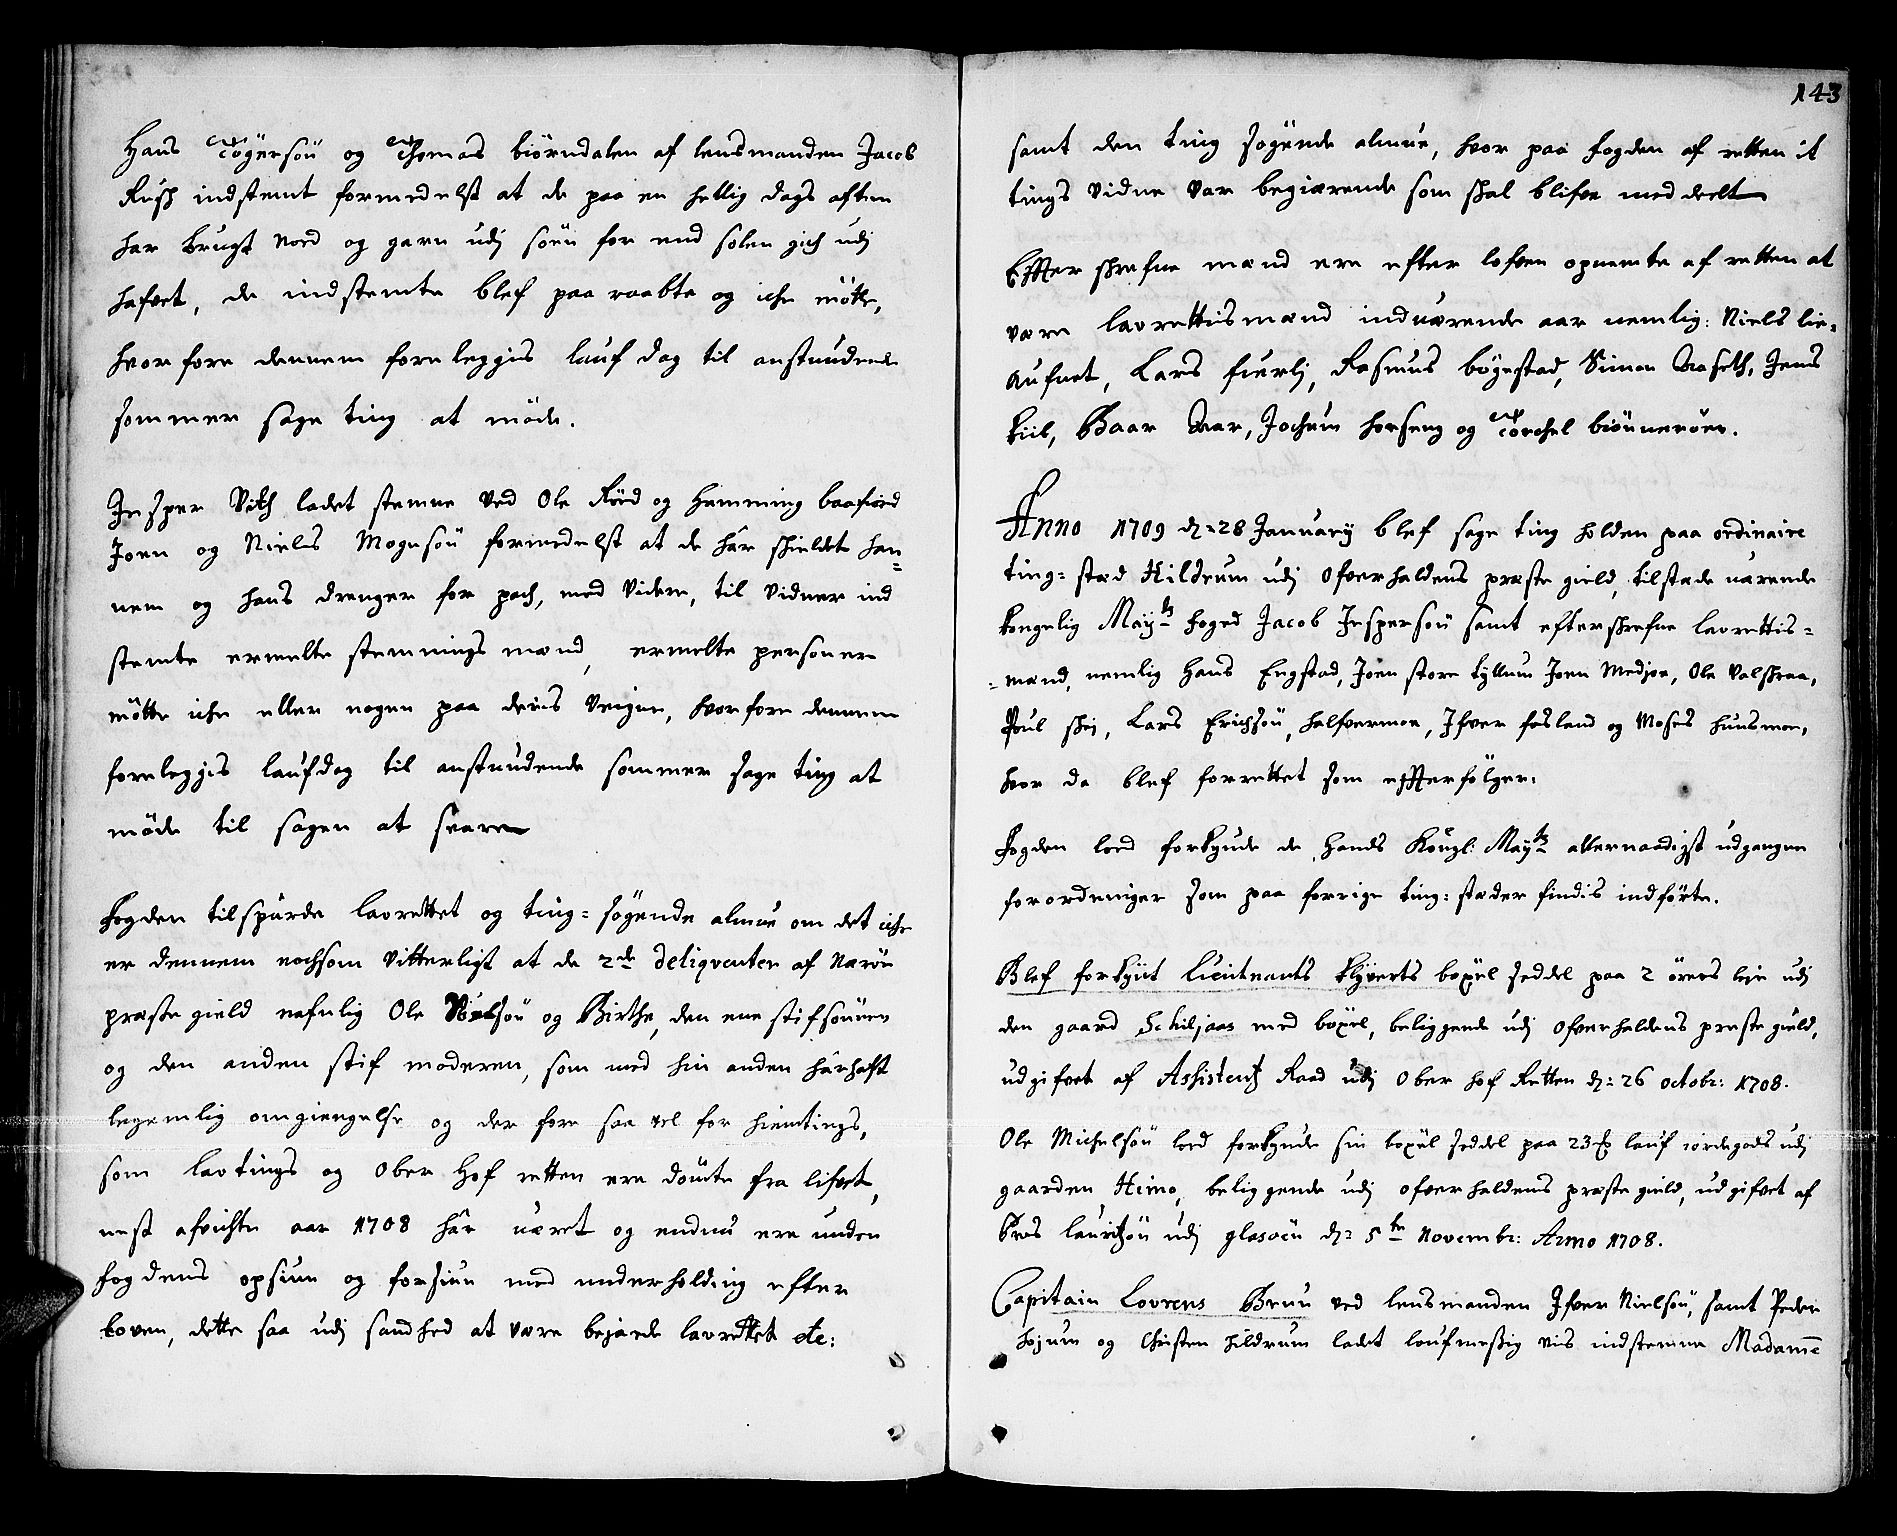 Hans Tögersön og Thomas biörndalen af lensmanden Jacob
Rush indstemt formedelst at de paa en hellig dags aften
har brugt Nord og garn udj söen for end solen gich udj
hafvet, de indstemte blef paa raabte og iche mötte,
hvorfore dennem forelegges lauf dag til anstundende
sommer sage ting at möde.
Jesper Vith ladet stemne ved Ole Röed og Hemming baafiord
Joen og Niels Mogensön formedelst at de har skieldet han=
nem og hans drenger for pach, med videre, til vidner ind
stemte ermelte stemnings mænd, ermelte personer
mötte iche eller nogen paa deris veigne, hvorfore dennem
forelegges laufdag til anstundende sommer sage ting at
möde til sagen at svare
Fogden tilspurde lavrettet og ting=sögende almue om det iche
er dennem nochsom vitterligt at de 2de deliqventer af Nærön
præste gield nafnlig Ole Nielsön og Birthe, den ene stifsönnen
og den anden stif moderen, som med hin anden har haft
legemlig omgiengelse og der fore saa vel for hiemtings,
som lavtings og Ober Hof retten ere dömte fra lifvet,
nest afvichte aar 1708 har været og endnu ere under
fogdens opsiun og forsiun med underholding efter
loven, dette saa udj sandhed at være bejaede lavrettet etc:
143
samt den ting sögende almue, hvor paa fogden af retten it
tings vidne var begiærende som skal blifve meddeelt
Effter skrefne mænd ere efter lofven opnemte af retten at
være lavrettismænd indværende aar nemlig: Niels lie=
aufnet, Lars fierlj, Rasmus bögestad, Simon Aaseth, Jens
Kiil, Baar Aar, Jochum horseng og Torchel biönneröen.
Anno 1709 d: 28 January blef sage ting holden paa ordinaire
ting=stæd Hildrum udj Ofverhaldens præste gield, tilstæde værende
Kongelig Mayts foged Jacob Jespersön samt efterskrefne lavrettis=
=mænd, nemlig Hans Engstad, Joen store tyllum Joen Medjoe, Ole valskraa,
Poul skej, Lars Erichsön, halfvermoe, Ifver fosland og Moses hunsmoe,
hvor da blef forrettet som effterfölger.
Fogden loed forkynde de Hands Kongl: Mayts allernaadigst udgangen
forordninger som paa forrige ting=stæder findis indförte.
Blef forkynt Lieutenants Klyverts böxel seddel paa 2 örers leje udj
den gaard Schiljaas med böxel, beliggende udj Ofverhaldens præste gield,
udgifvet af Assistentz Raad udj Ober hof Retten d: 26 octobr: 1708.
Ole Michelsön loed forkynde sin böxel seddel paa 23 lauf iordegods udj
gaarden Himo, beliggende udj Ofverhaldens præste gield, udgifvet af
Pros lauritzön udj glasöen d: 5te Novembr: Anno 1708.
Capitain Lovrens Bruu ved lensmanden Ifver Nielsön, samt Peder
Hojum og Christen hildrum ladet laufmessig vis indstemme Madame